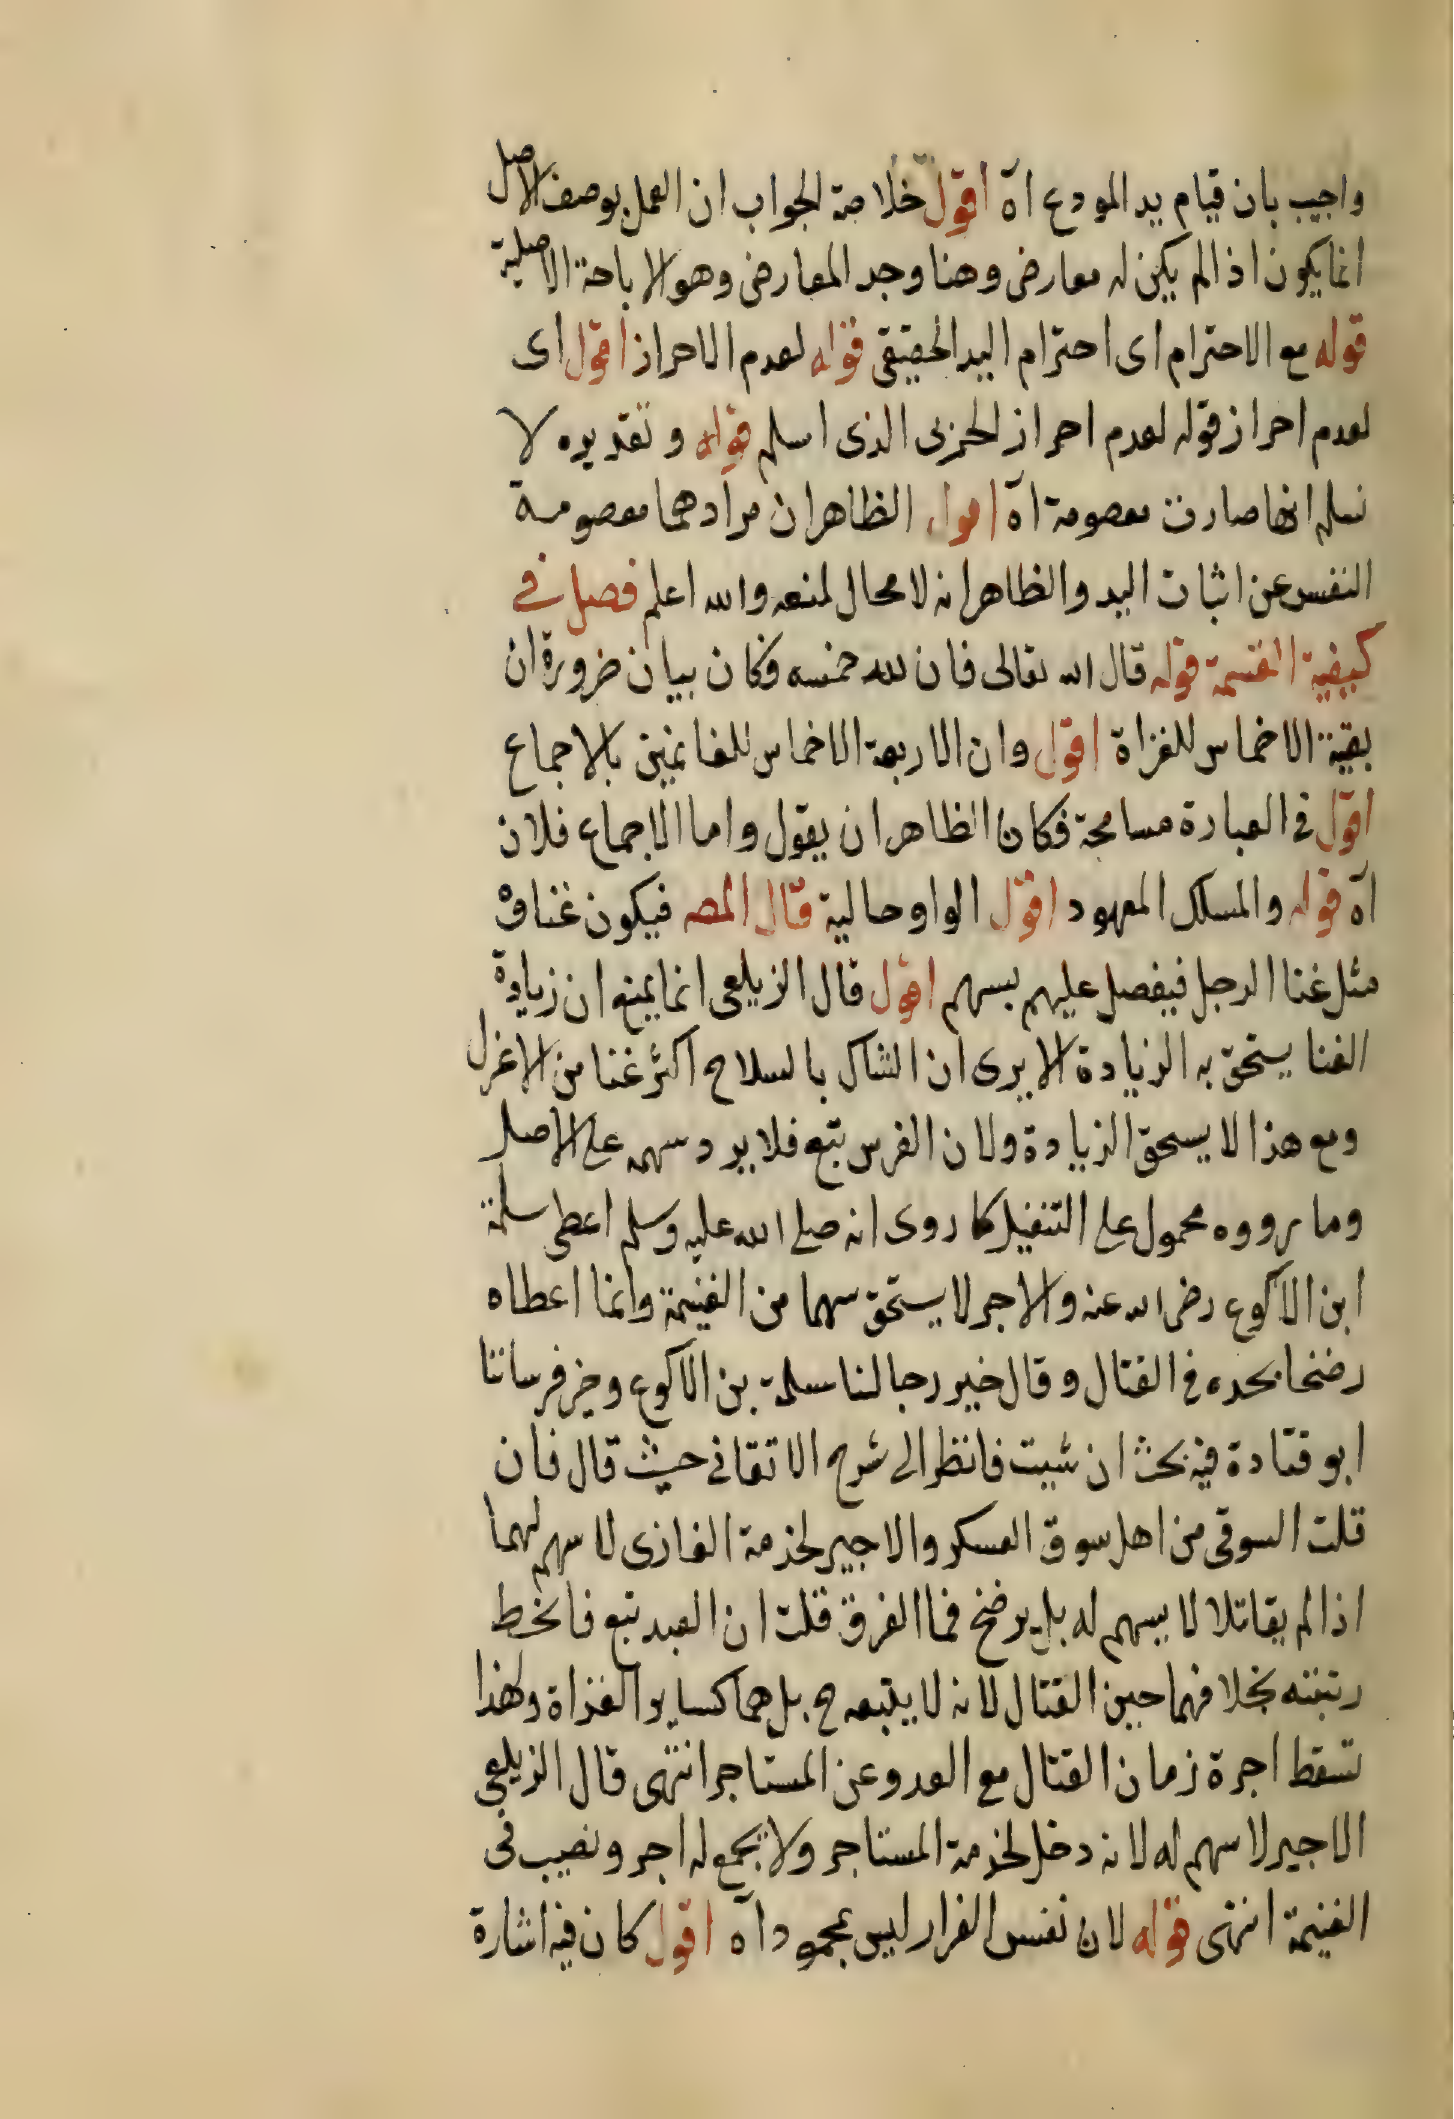 واجيب بان قيام يد المودع اه اقول خلاصة الجواب ان العمل بوصف الاصل
انما يكون اذا لم يكن له معارض وهنا وجد المعارض وهو الاباحة الاصلية
قوله مع الاحترام اى احترام اليد الحقيقى قوله لعدم الاحراز اقول اى
لعدم احراز قوله لعدم احراز الحربى الذى اسلم قوله وتقديره لا
نسلم انها صارت معصومة اه اقول الظاهر ان مرادهما معصومة
النفس عن اثبات اليد والظاهر انه لا محال لمنعه والله اعلم فصل في
كيفية القسمة قوله قال الله تعالى فان لله خمسه فكان بيان ضرورة ان
بقية الاخماس للغزاة اقول وان الاربعة الاخماس للغانمين بالاجماع
اقول في العبارة مسامحة فكان الظاهر ان يقول واما الاجماع فلان
اه قوله والمسلك المعهود اقول الواو حالية قال المصه فيكون غناوه
مثل غنا الرجل فيفصل عليهم بسهم اقول قال الزيلعى انما يمنع ان زيادة
الغنا يستحق به الزيادة الا يرى ان الشاك بالسلاح اكثر غنا من الاغزل
ومع هذا لا يسحق الزيادة ولان الفرس تبع فلا يرد سهمه على الاصل
وما رووه محمول على التنفيل كما روى انه صلى الله عليه وسلم اعطى سلمة
ابن الاكوع رضى الله عنه والاجر لا يستحق سهما من الغنيمة وانما اعطاه
رضخا بحده في القتال وقال خير رجالنا سلمة بن الاكوع وخير فرساننا
ابو قتادة فيه بحث ان شيت فانظر الى شرح الاتقانى حيث قال فان
قلت السوقى من اهل سوق العسكر والاجير لخدمة الغازى لا سهم لهما
اذا لم يقاتلا لا يسهم له بل يرضخ فما الفرق قلت ان العبد تبع فانخط
رتبته بخلافهما حين القتال لانه لا يتبعه ح بل هما كساير الغزاة ولهذا
تسقط اجرة زمان القتال مع العدو عن المستاجر انتهى قال الزيلعى
الاجير لا سهم له لانه دخل لخدمة المستاجر ولا يجمع له اجر ونصيب فى
الغنيمة انتهى قوله لان نفس الفرار ليس بمحمود اه اقول كان فيه اشارة